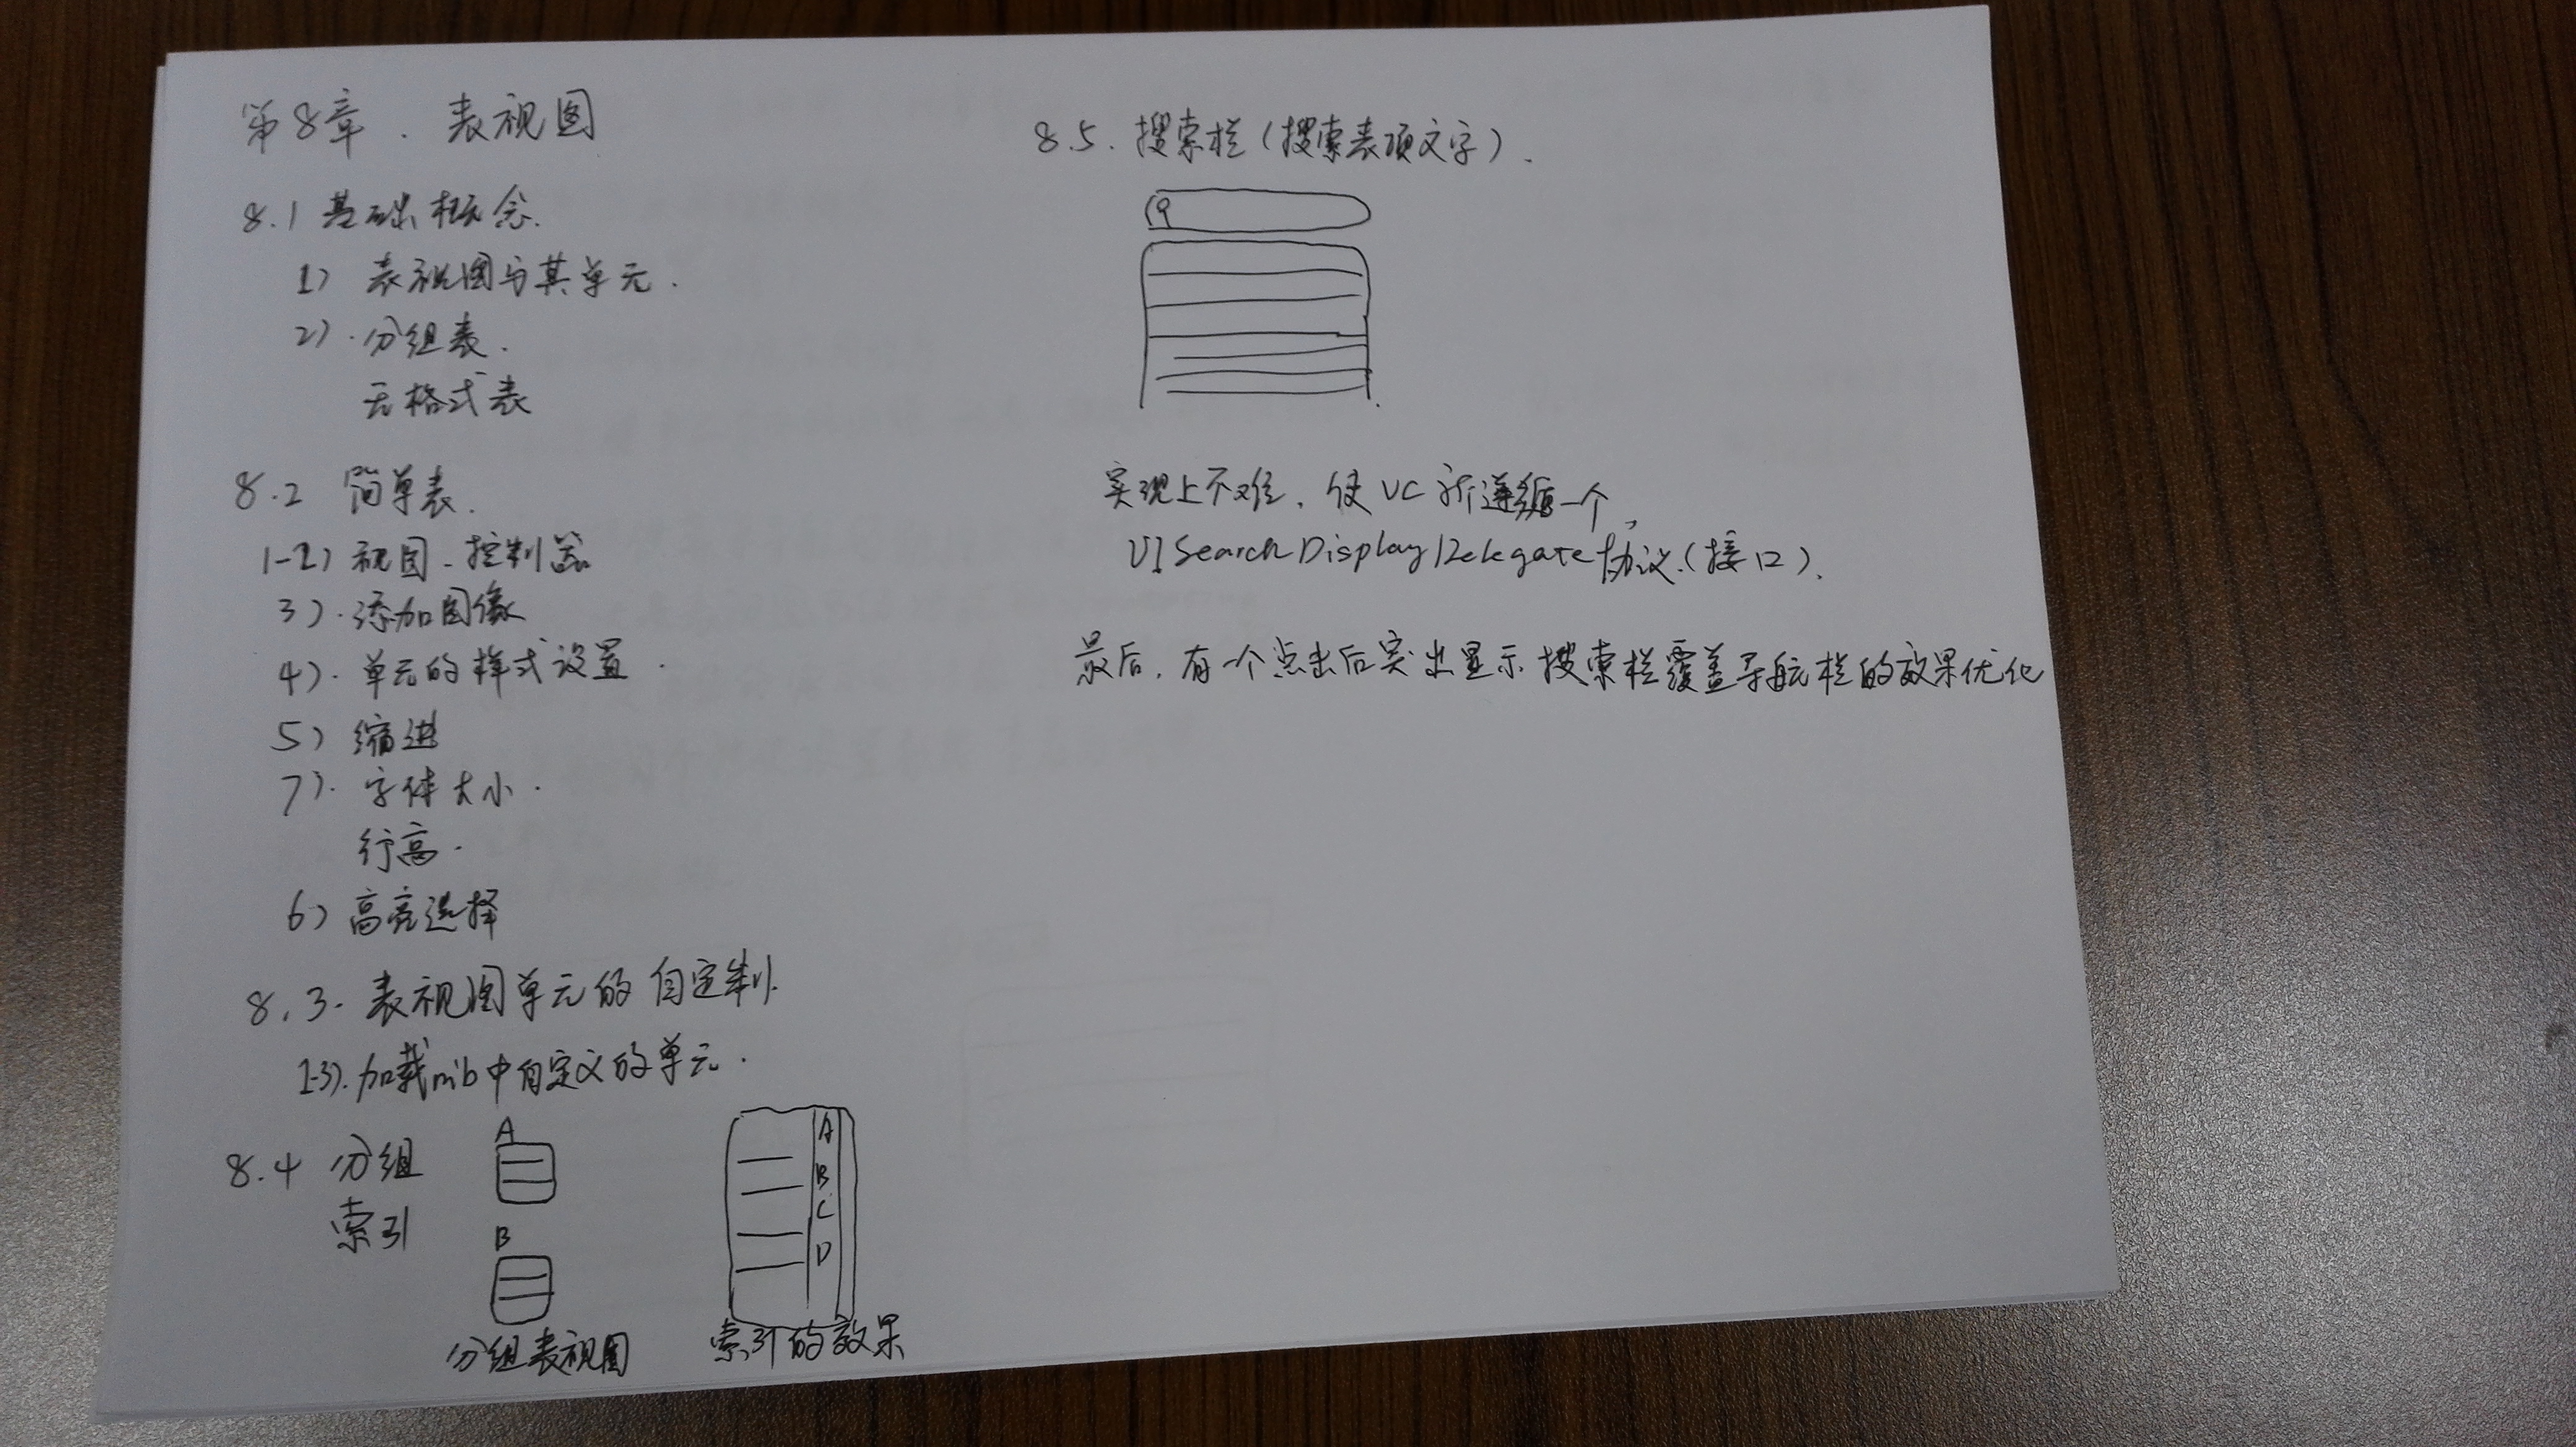 第8章. 表视图
8.1 基础概念.
1) 表视图与其单元.
2). 分组表.
无格式表
8.2 简单表.
1-2) 视图-控制器
3). 添加图像
4). 单元的样式设置.
5) 缩进
7). 字体大小.
行高.
6) 高亮选择
8.3. 表视图单元的自定制.
1-3). 加载nib中自定义的单元.
8.4 分组
索引
A
B
分组表视图
A
B
C
D
索引的效果
8.5. 搜索栏(搜索表项文字).
实现上不难, 使VC 遵循一个,
UISearchDisplayDelegate协议.(接口).
最后, 有一个点击后突出显示搜索栏覆盖导航栏的效果优化